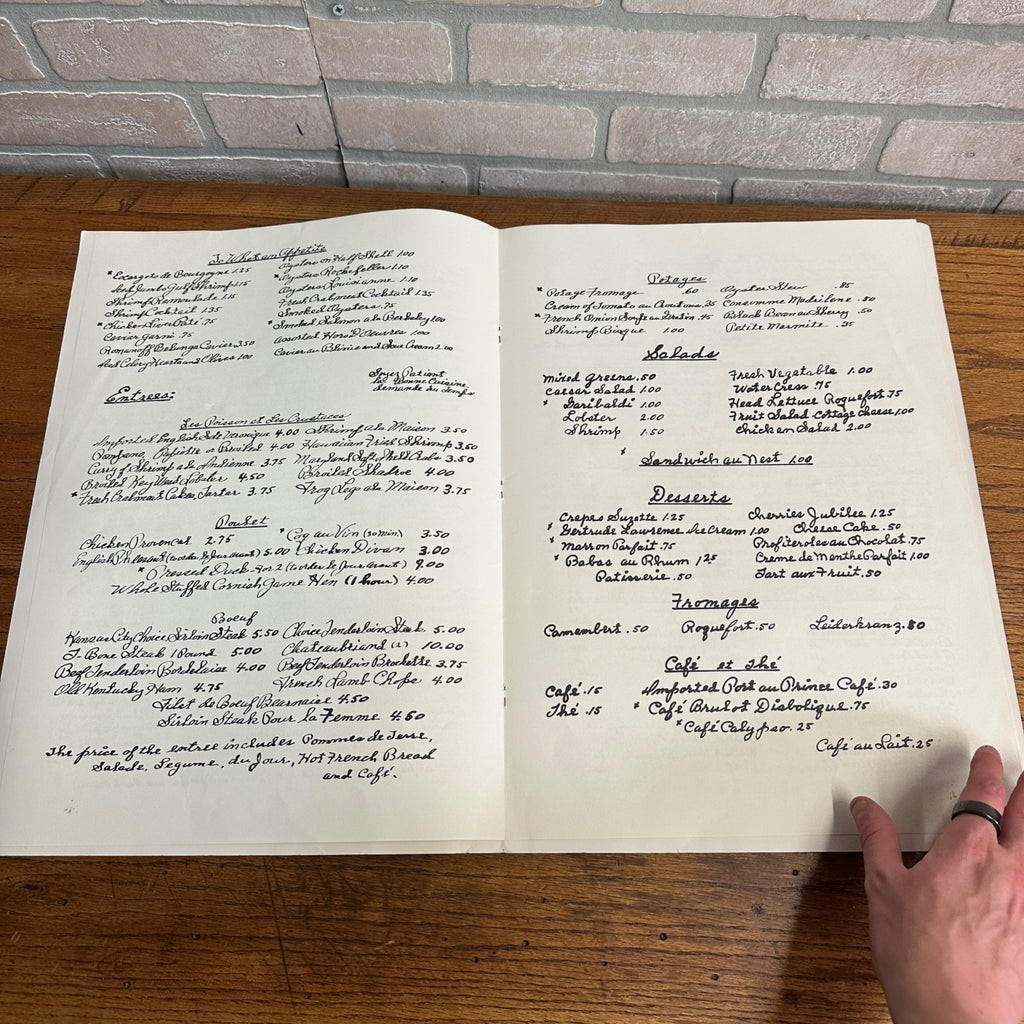 To Whet an Appetite
* Escargots de Bourgogne 1.25
Iced Jumbo Gulf Shrimp 1.15
Shrimp Remoulade 1.15
Shrimp Cocktail 1.35
* Chicken Liver Paté .75
Caviar Garni .75
Romanoff Beluga Cavier 3.50
Iced Celery Hearts and Olives 1.00
Oysters on Half Shell 1.00
* Oysters Rockefeller 1.10
Oysters Louisianne 1.10
Fresh Crabmeat Cocktail 1.35
Smoked Oysters .75
* Smoked Salmon a la Berkeley 1.00
Assorted Hors D'Oeuvres 1.00
Cavier au Blinis and Sour Cream 2.00
Soyez Patient
la Bonne Cuisine
demande du Temps
Entrees:
Les Poisson et Les Crustaces
Imported English Sole Veronique 4.00 Shrimp a la Maison 3.50
Pompano, Papillote or Broiled 4.00 Hawaiian Fried Shrimp 3.50
Curry of Shrimp a la Indienne 3.75 Maryland Soft Shell Crabs 3.50
Broiled Key West Lobster 4.50 Broiled Shadroe 4.00
* Fresh Crabmeat Cakes, Tartar 3.75 Frog Legs a la Maison 3.75
Poulet
Chicken Provencal 2.75 * Coq au Vin (30 min) 3.50
English Pheasant (to order le Jour avant) 5.00 Chicken Divan 3.00
Pressed Duck For 2 (to order le Jour avant) 9.00
Whole Stuffed Cornish Game Hen (1 hour) 4.00
Boeuf
Kansas City Choice Sirloin Steak 5.50 Choice Tenderloin Steak 5.00
T. Bone Steak 1 Pound 5.00 Chateaubriand (2) 10.00
Beef Tenderloin Bordelaise 4.00 Beef Tenderloin Brochette 3.75
Old Kentucky Ham 4.75 French Lamb Chops 4.00
Filet de Boeuf Bearnaise 4.50
Sirloin Steak Pour la Femme 4.50
The price of the entree includes Pommes de Terre,
Salade, Legume, du Jour, Hot French Bread
and Café.
Potages
* Potage Fromage .60 Oyster Stew .85
Cream of Tomato au Croutons .35 Consomme Madrilene .50
* French Onion Soupe au Gratin .45 Black Bean au Sherry .50
Shrimp Bisque 1.00 Petite Marmite .35
Salads
Mixed Greens .50
Caesar Salad 1.00
* Garibaldi 1.00
Lobster 2.00
Shrimp 1.50
Fresh Vegetable 1.00
Water Cress .75
Head Lettuce Roquefort .75
Fruit Salad Cottage Cheese 1.00
Chicken Salad 2.00
* Sandwich au Nest 1.00
Desserts
Crepes Suzette 1.25 Cherries Jubilee 1.25
* Gertrude Lawrence Ice Cream 1.00 Cheese Cake .50
* Marron Parfait .75 Profiteroles au Chocolat .75
* Babas au Rhum 1.25 Creme de Menthe Parfait 1.00
Patisserie .50 Tart aux Fruit .50
Fromages
Camembert .50 Roquefort .50 Leiderkranz .50
Café et Thé
Café .15 Imported Port au Prince Café .30
Thé .15 * Café Brulot Diabolique .75
* Café Calypso .25
Café au Lait .25